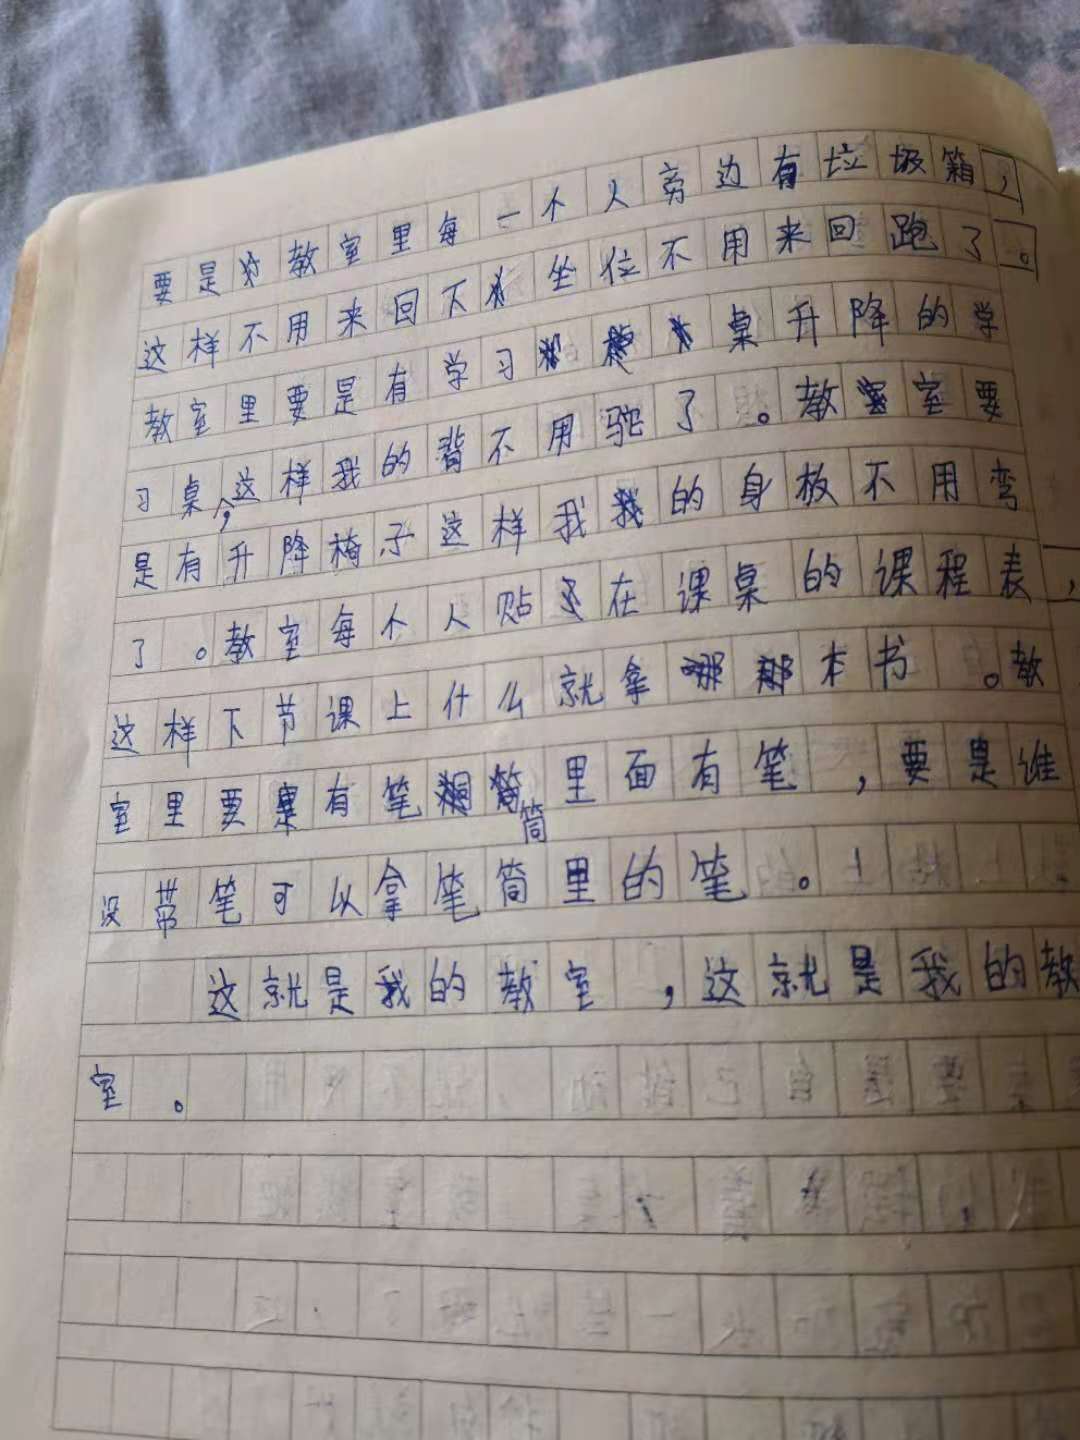 要是教室里每一个人旁边有垃圾箱，
这样不用来回下坐位不用来回跑了。
教室里要是有学习桌升降的学
习桌，这样我的背不用驼了。教室要
是有升降椅子这样我的身板不用弯
了。教室每个人贴在课桌的课程表，
这样下节课上什么就拿哪本书。教
室里要是有笔筒里面有笔，要是谁
没带笔可以拿笔筒里的笔。
这就是我的教室，这就是我的教
室。